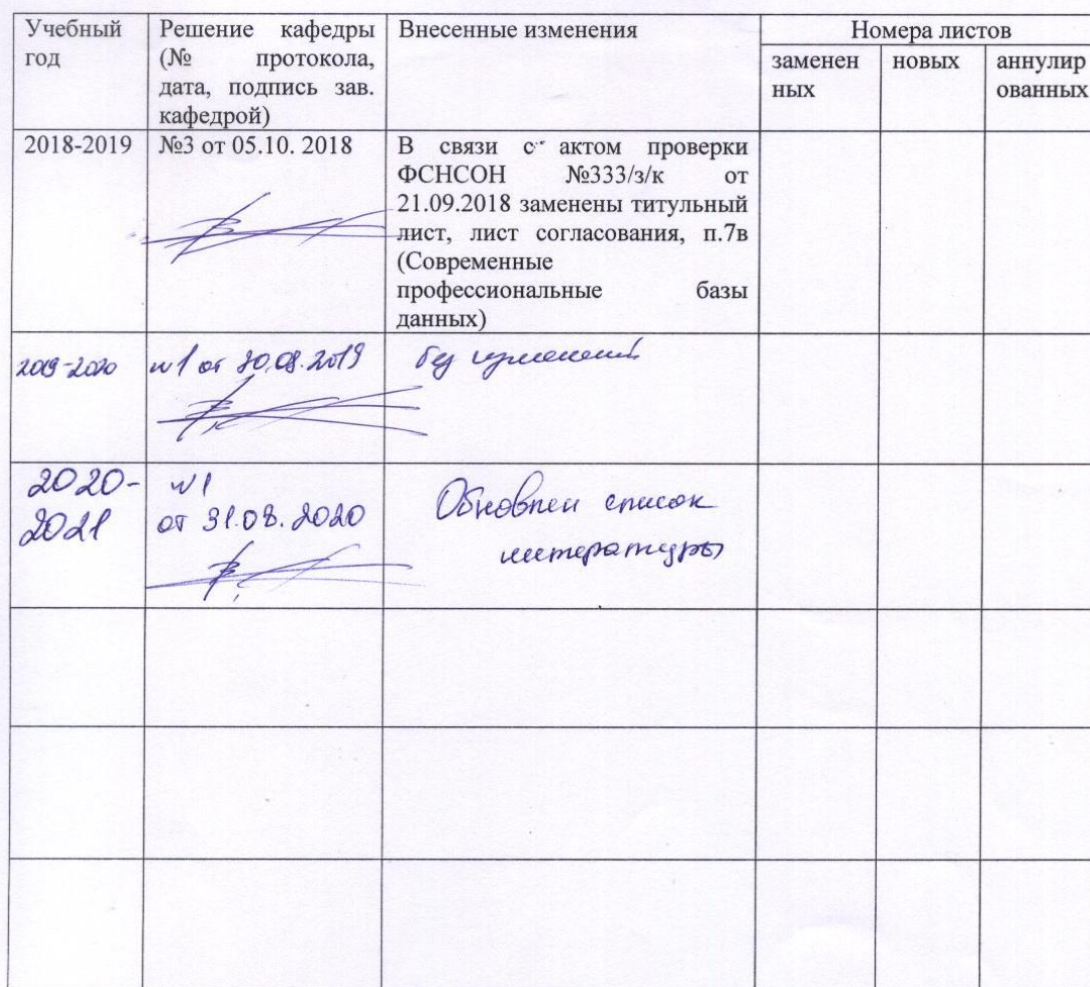 Учебный год
Решение кафедры (№ протокола, дата, подпись зав. кафедрой)
Внесенные изменения
Номера листов
заменен ных
новых
аннулир ованных
2018-2019
№3 от 05.10. 2018
В связи с актом проверки
ФСНСОН №333/з/к от
21.09.2018 заменены титульный
лист, лист согласования, п.7в
(Современные
профессиональные базы
данных)
2019-2020
№1 от 30.08.2019
без изменений
2020-
2021
№1
от 31.08.2020
Обновлен список
литературы